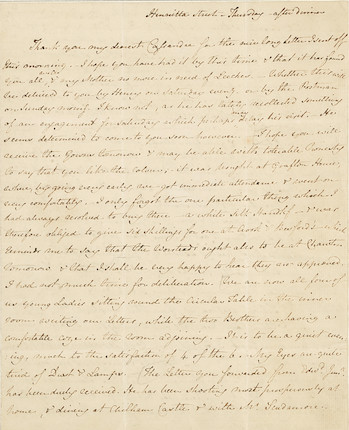 Henrietta Street - Thursday - after dinner
Thank you my dearest Cassandra for the nice long Letter I sent off
this morning. - I hope you have had it by this time & that it has found
you all well, & my Mother no more in need of Leeches. - Whether this will
be delivered to you by Henry on Saturday eveng or by the Postman
on Sunday morng I know not, as he has lately recollected something
of an engagement for Saturday, which perhaps may delay his visit. - He
seems determined to come to you soon however. - I hope you will
receive the Gown tomorrow & may be able with tolerable honesty
to say that you like the Colour; - It was bought at Grafton House,
where, by going very early, we got immediate attendance, & went on
very comfortably. - I only forgot the one particular thing which I
had always resolved to buy there - a white silk Handkf - & was
therefore obliged to give six shillings for one at Crook & Besford's - which
reminds me to say that the Worsteads ought also to be at Chawton
tomorrow & that I shall be very happy to hear they are approved.
I had not much time for deliberation. We are now all four of
us young Ladies sitting round the Circular Table in the inner
room writing our Letters, while the two Brothers are having a
comfortable coze in the room adjoining. - It is to be a quiet even-
ing, much to the satisfaction of 4 of the 6. - My Eyes are quite
tired of Dust & Lamps. - The Letter you forwarded from Edwd Junr
has been duly received. He has been shooting most prosperously at
home, & dining at Chilham Castle & with Mr Scudamore.